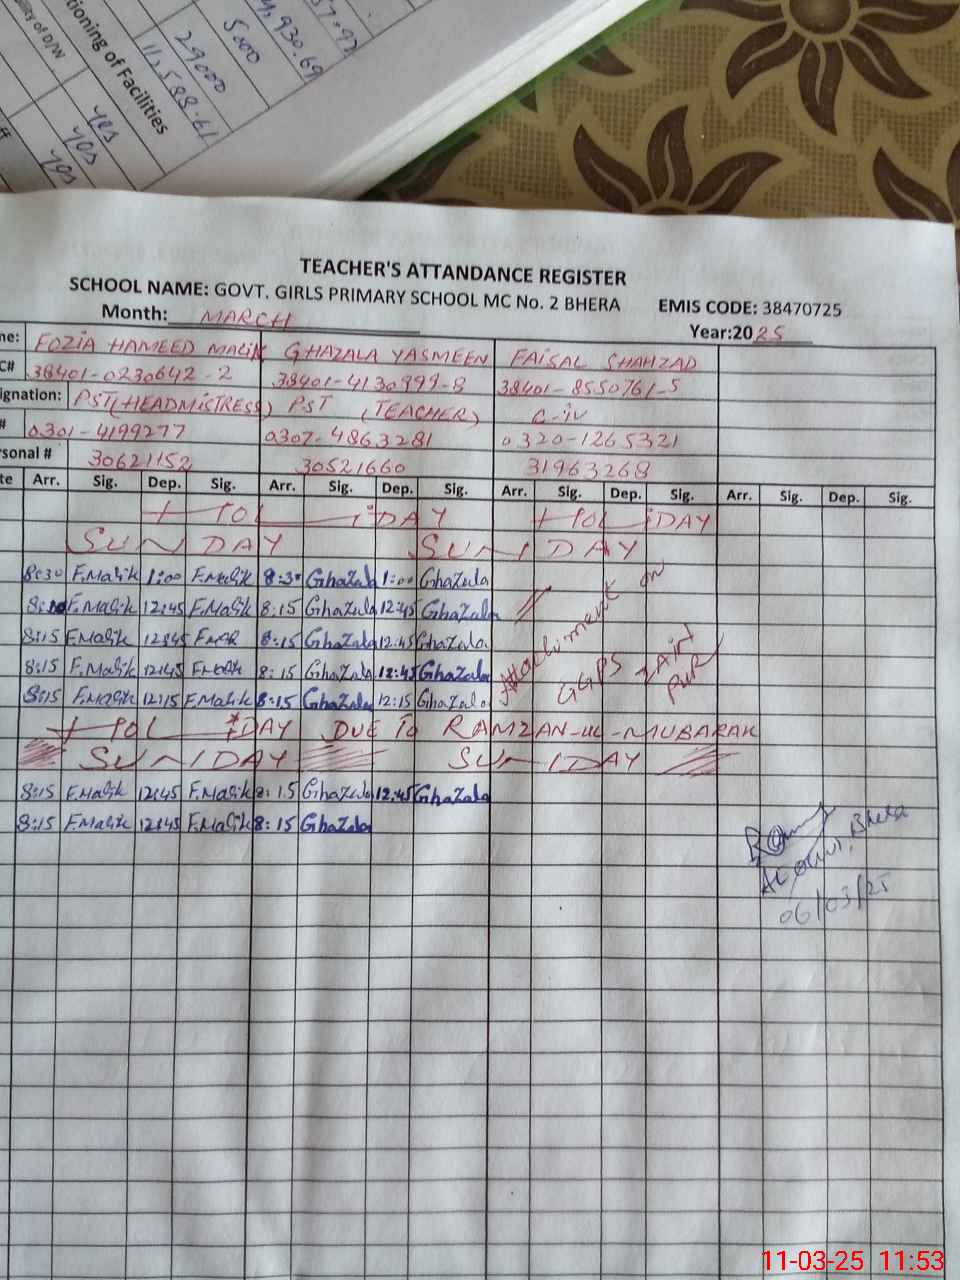 tioning of Facilities
ility of D/W
yes
yes
yes
11,588.61
29000
5000
TEACHER'S ATTANDANCE REGISTER
SCHOOL NAME: GOVT. GIRLS PRIMARY SCHOOL MC No. 2 BHERA EMIS CODE: 38470725
Month: MARCH Year:2025
me: FOZIA HAMEED MALIK GHAZALA YASMEEN FAISAL SHAHZAD
C# 38401-0230642-2 38401-4130999-8 38401-8550761-5
ignation: PST(HEADMISTRESS) PST (TEACHER) C-iv
# 0301-4199277 0307-4863281 0320-1265321
rsonal # 30621152 30521660 31963268
te Arr. Sig. Dep. Sig. Arr. Sig. Dep. Sig. Arr. Sig. Dep. Sig. Arr. Sig. Dep. Sig.
HOLiDAY HOLiDAY
SUNDAY SUNDAY
8:30 F.Malik 1:00 F.Malik 8:30 Ghazala 1:00 Ghazala
F.Malik 12:45 F.Malik 8:15 Ghazala 12:45 Ghazala
8:15 F.Malik 12:45 8:15 Ghazala 12:45 Ghazala
8:15 F.Malik 12:45 F.Malik 8:15 Ghazala 12:45 Ghazala
8:15 F.Malik 12:15 F.Malik 8:15 Ghazala 12:15 Ghazala
Attachment on
GGPS ZAIN
PUR
HOLiDAY DUE TO RAMZAN-UL-MUBARAK
SUNDAY SUNDAY
8:15 F.Malik 12:45 F.Malik 8:15 Ghazala 12:45 Ghazala
8:15 F.Malik 12:45 F.Malik 8:15 Ghazala
Bhera
06/03/25
11-03-25 11:53